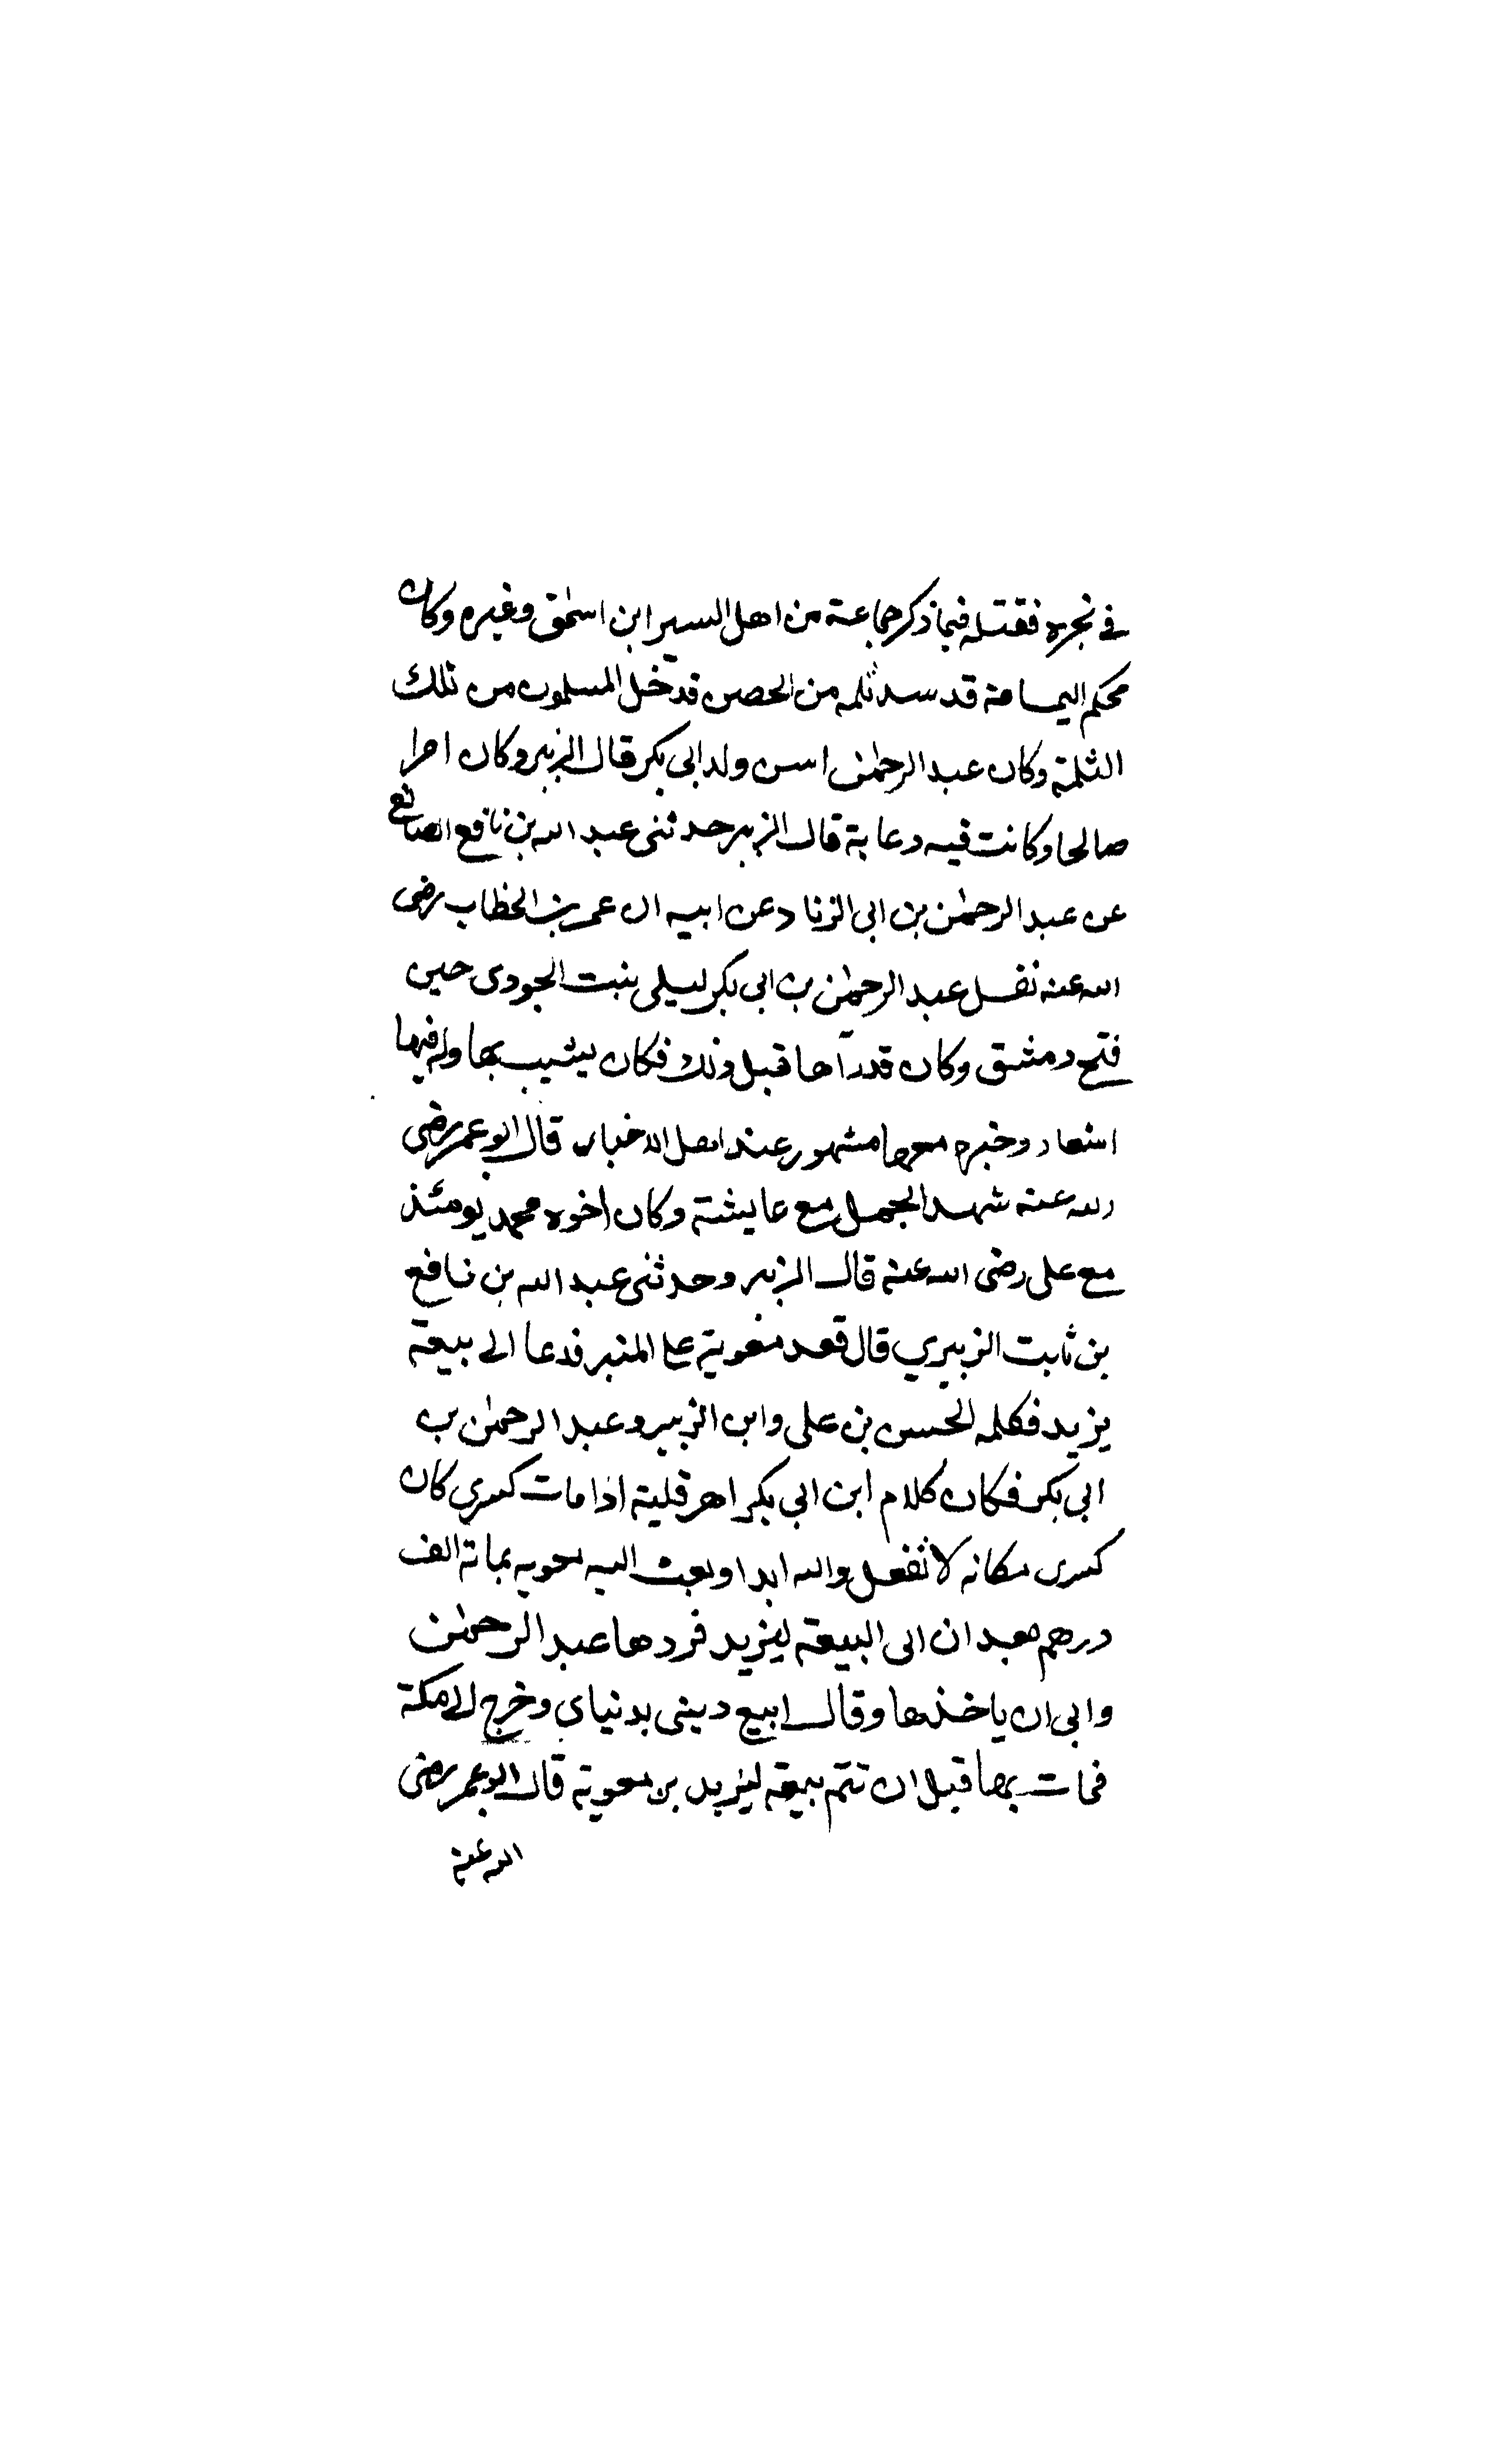 في نحره فقتله فيما ذكر جماعة من اهل السير ابن اسحٰق وغيره وكان
محكم اليمامة قد سد ثلمه من الحصن فدخل المسلمون من تلك
الثلمة وكان عبد الرحمٰن اسن ولد ابى بكر قال الزبير وكان امرا
صالحا وكانت فيه دعابة قال الزبير حدثنى عبد الله بن نافع الصائغ
عن عبد الرحمٰن بن ابى الزناد عن ابيه ان عمر بن الخطاب رضى
الله عنه نفل عبد الرحمٰن بن ابى بكر ليلى بنت الجودى حين
فتح دمشق وكان قد رآها قبل ذلك فكان يشبب بها وله فيها
اشعار وخبره معها مشهور عند اهل الاخبار قال ابو عمر رضى
الله عنه شهد الجمل مع عايشة وكان اخوه محمد يومئذ
مع على رضى الله عنه قال الزبير وحدثنى عبد الله بن نافع
بن ثابت الزبيري قال قعد معوية على المنبر فدعا الى بيعة
يزيد فكلمه الحسين بن على وابن الزبير وعبد الرحمٰن بن
ابى بكر فكان كلام ابن ابى بكر اهرقلية اذا مات كسرى كان
كسرى مكانه لا نفعل والله ابدا وبعث اليه معوية بمائة الف
درهم بعد ان ابى البيعة ليزيد فردها عبد الرحمٰن
وابى ان ياخذها وقال ابيع دينى بدنياى وخرج الى مكة
فمات بها قبل ان تتم بيعة ليزيد بن معوية قال ابو عمر رضى
الله عنه